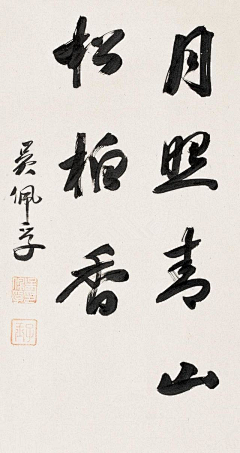 月照青山
松柏香
吴佩孚